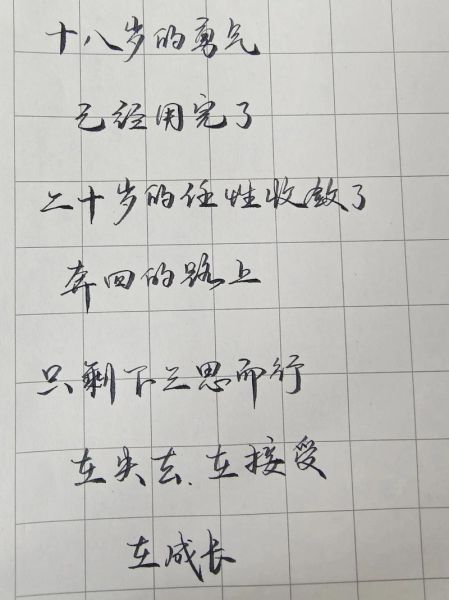 十八岁的勇气
已经用完了
二十岁的任性收敛了
奔四的路上
只剩下三思而行
在失去、在接受
在成长